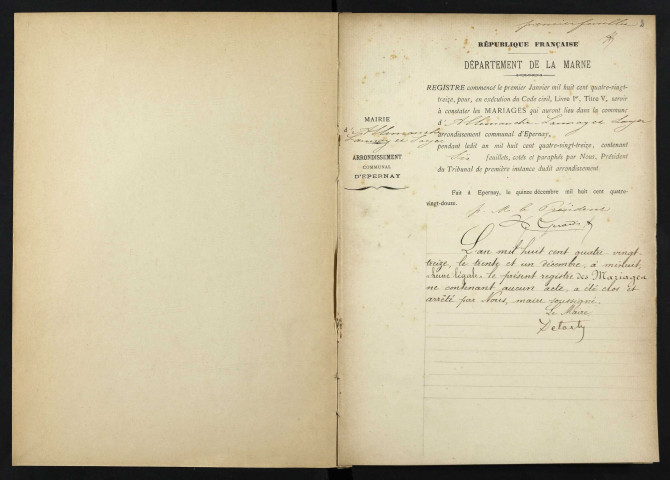 premier feuillet
RÉPUBLIQUE FRANÇAISE
DÉPARTEMENT DE LA MARNE
REGISTRE commencé le premier Janvier mil huit cent quatre-vingt-
treize, pour, en exécution du Code civil, Livre Ier, Titre V, servir
à constater les MARIAGES qui auront lieu dans la commune
d'Allemanche-Launay et Soyer
arrondissement communal d'Epernay,
pendant ledit an mil huit cent quatre-vingt-treize, contenant
six feuillets, cotés et paraphés par Nous, Président
du Tribunal de première instance dudit arrondissement.
Fait à Epernay, le quinze décembre mil huit cent quatre-
vingt-douze.
p. M. le Président
MAIRIE
d'Allemanche
Launay et Soyer
ARRONDISSEMENT
COMMUNAL
D'EPERNAY
L'an mil huit cent quatre-vingt-
treize, le trente et un décembre, à minuit,
heure légale, le présent registre des Mariages
ne contenant aucun acte, a été clos et
arrêté par Nous, maire soussigné.
Le Maire